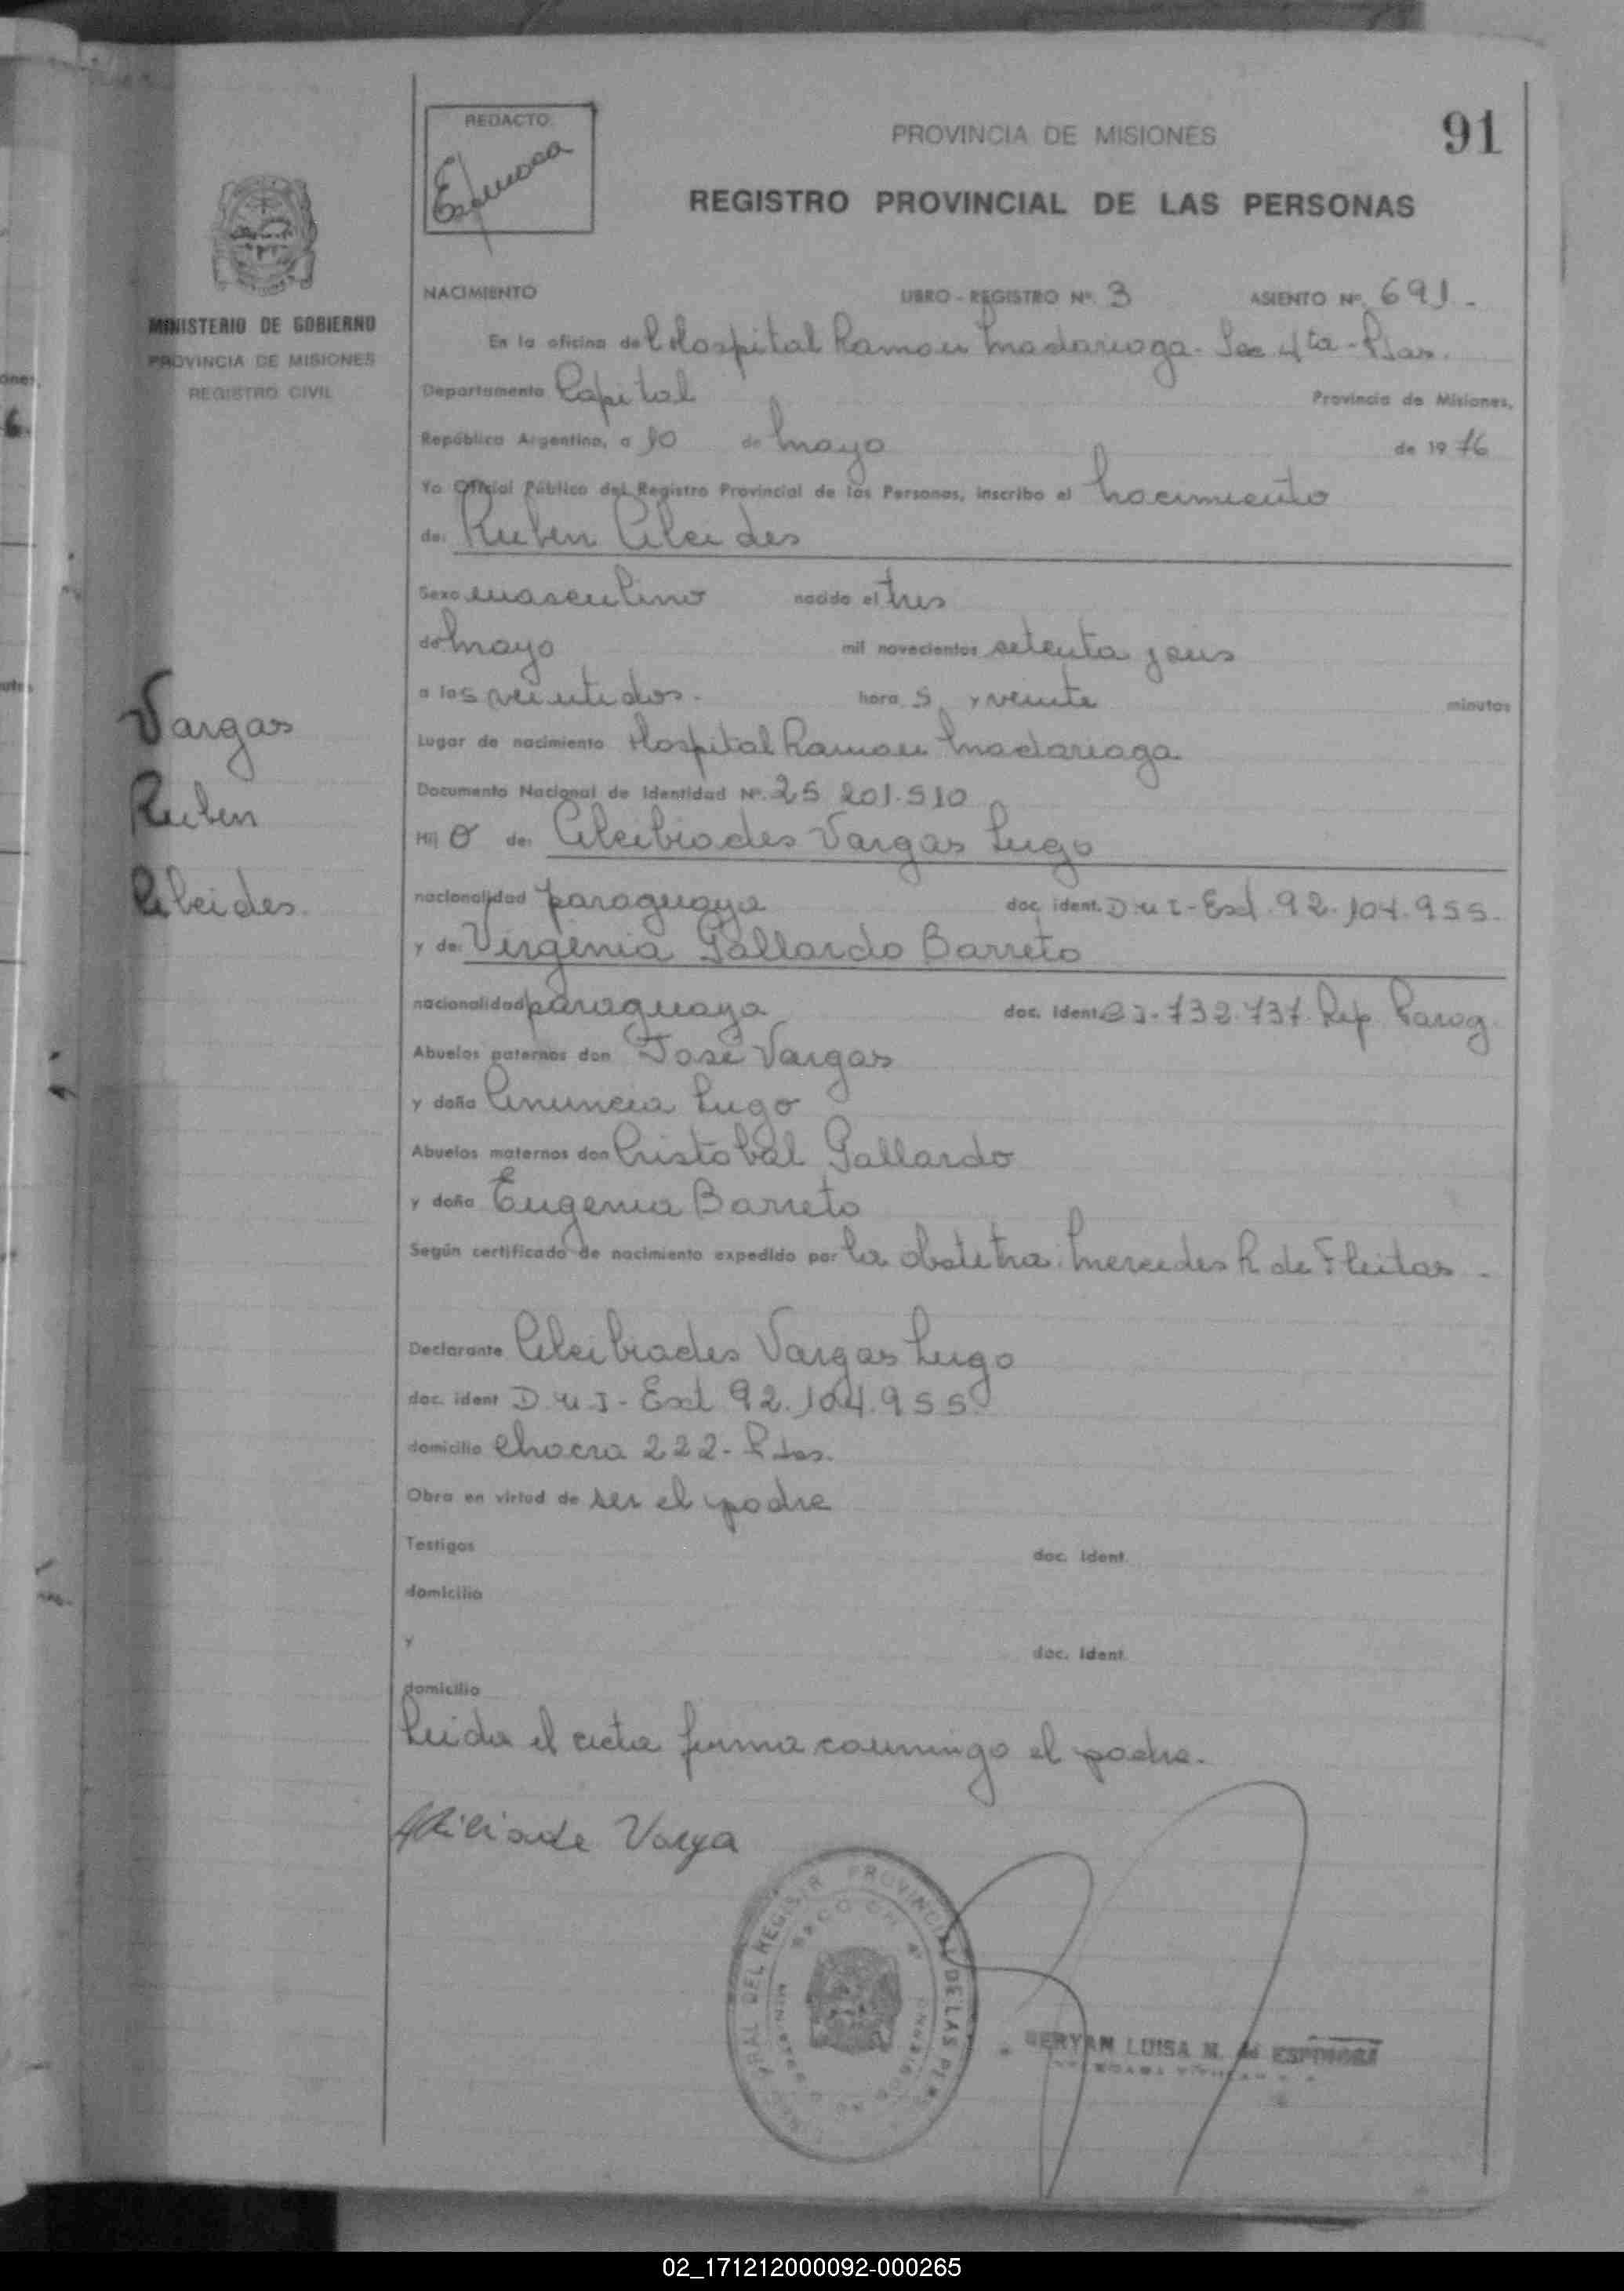 REDACTO
Espinosa
PROVINCIA DE MISIONES
91
REGISTRO PROVINCIAL DE LAS PERSONAS
MINISTERIO DE GOBIERNO
PROVINCIA DE MISIONES
REGISTRO CIVIL
NACIMIENTO LIBRO - REGISTRO Nº. 3 ASIENTO Nº. 691.-
En la oficina del Hospital Ramon Madariaga - Sec 4ta - Pdas.
Departamento Capital Provincia de Misiones,
República Argentina, a 10 de Mayo de 1976
Yo Oficial Público del Registro Provincial de las Personas, inscribo el Nacimiento
de: Ruben Alcides
Sexo masculino nacido el tres
de Mayo mil novecientos setenta y seis
a las veintidos.- hora s y veinte minutos
Lugar de nacimiento Hospital Ramon Madariaga
Documento Nacional de Identidad Nº. 25 201.510
Hij o de: Alcibiades Vargas Lugo
nacionalidad paraguaya doc. ident. D.N.I - Ext. 92.104.955.
y de: Virginia Gallardo Barreto
nacionalidad paraguaya doc. ident. CI. 732.737. Rep. Parag.
Abuelos paternos don José Vargas
y doña Anuncia Lugo
Abuelos maternos don Cristobal Gallardo
y doña Eugenia Barreto
Según certificado de nacimiento expedido por la obstetra Mercedes R de Fleitas -
Declarante Alcibiades Vargas Lugo
doc. ident D.N.I - Ext 92.104.955.
domicilio Chacra 222 - Pdas.
Obra en virtud de ser el padre
Testigos doc. ident.
domicilio
y doc. ident.
domicilio
Leida el acta firma conmingo el padre.
Vargas
Ruben
Alcides.
Vargas
DEL REGISTR PROVINCIAL DE LAS PERS
LUISA M. de ESPINOSA
02_171212000092-000265